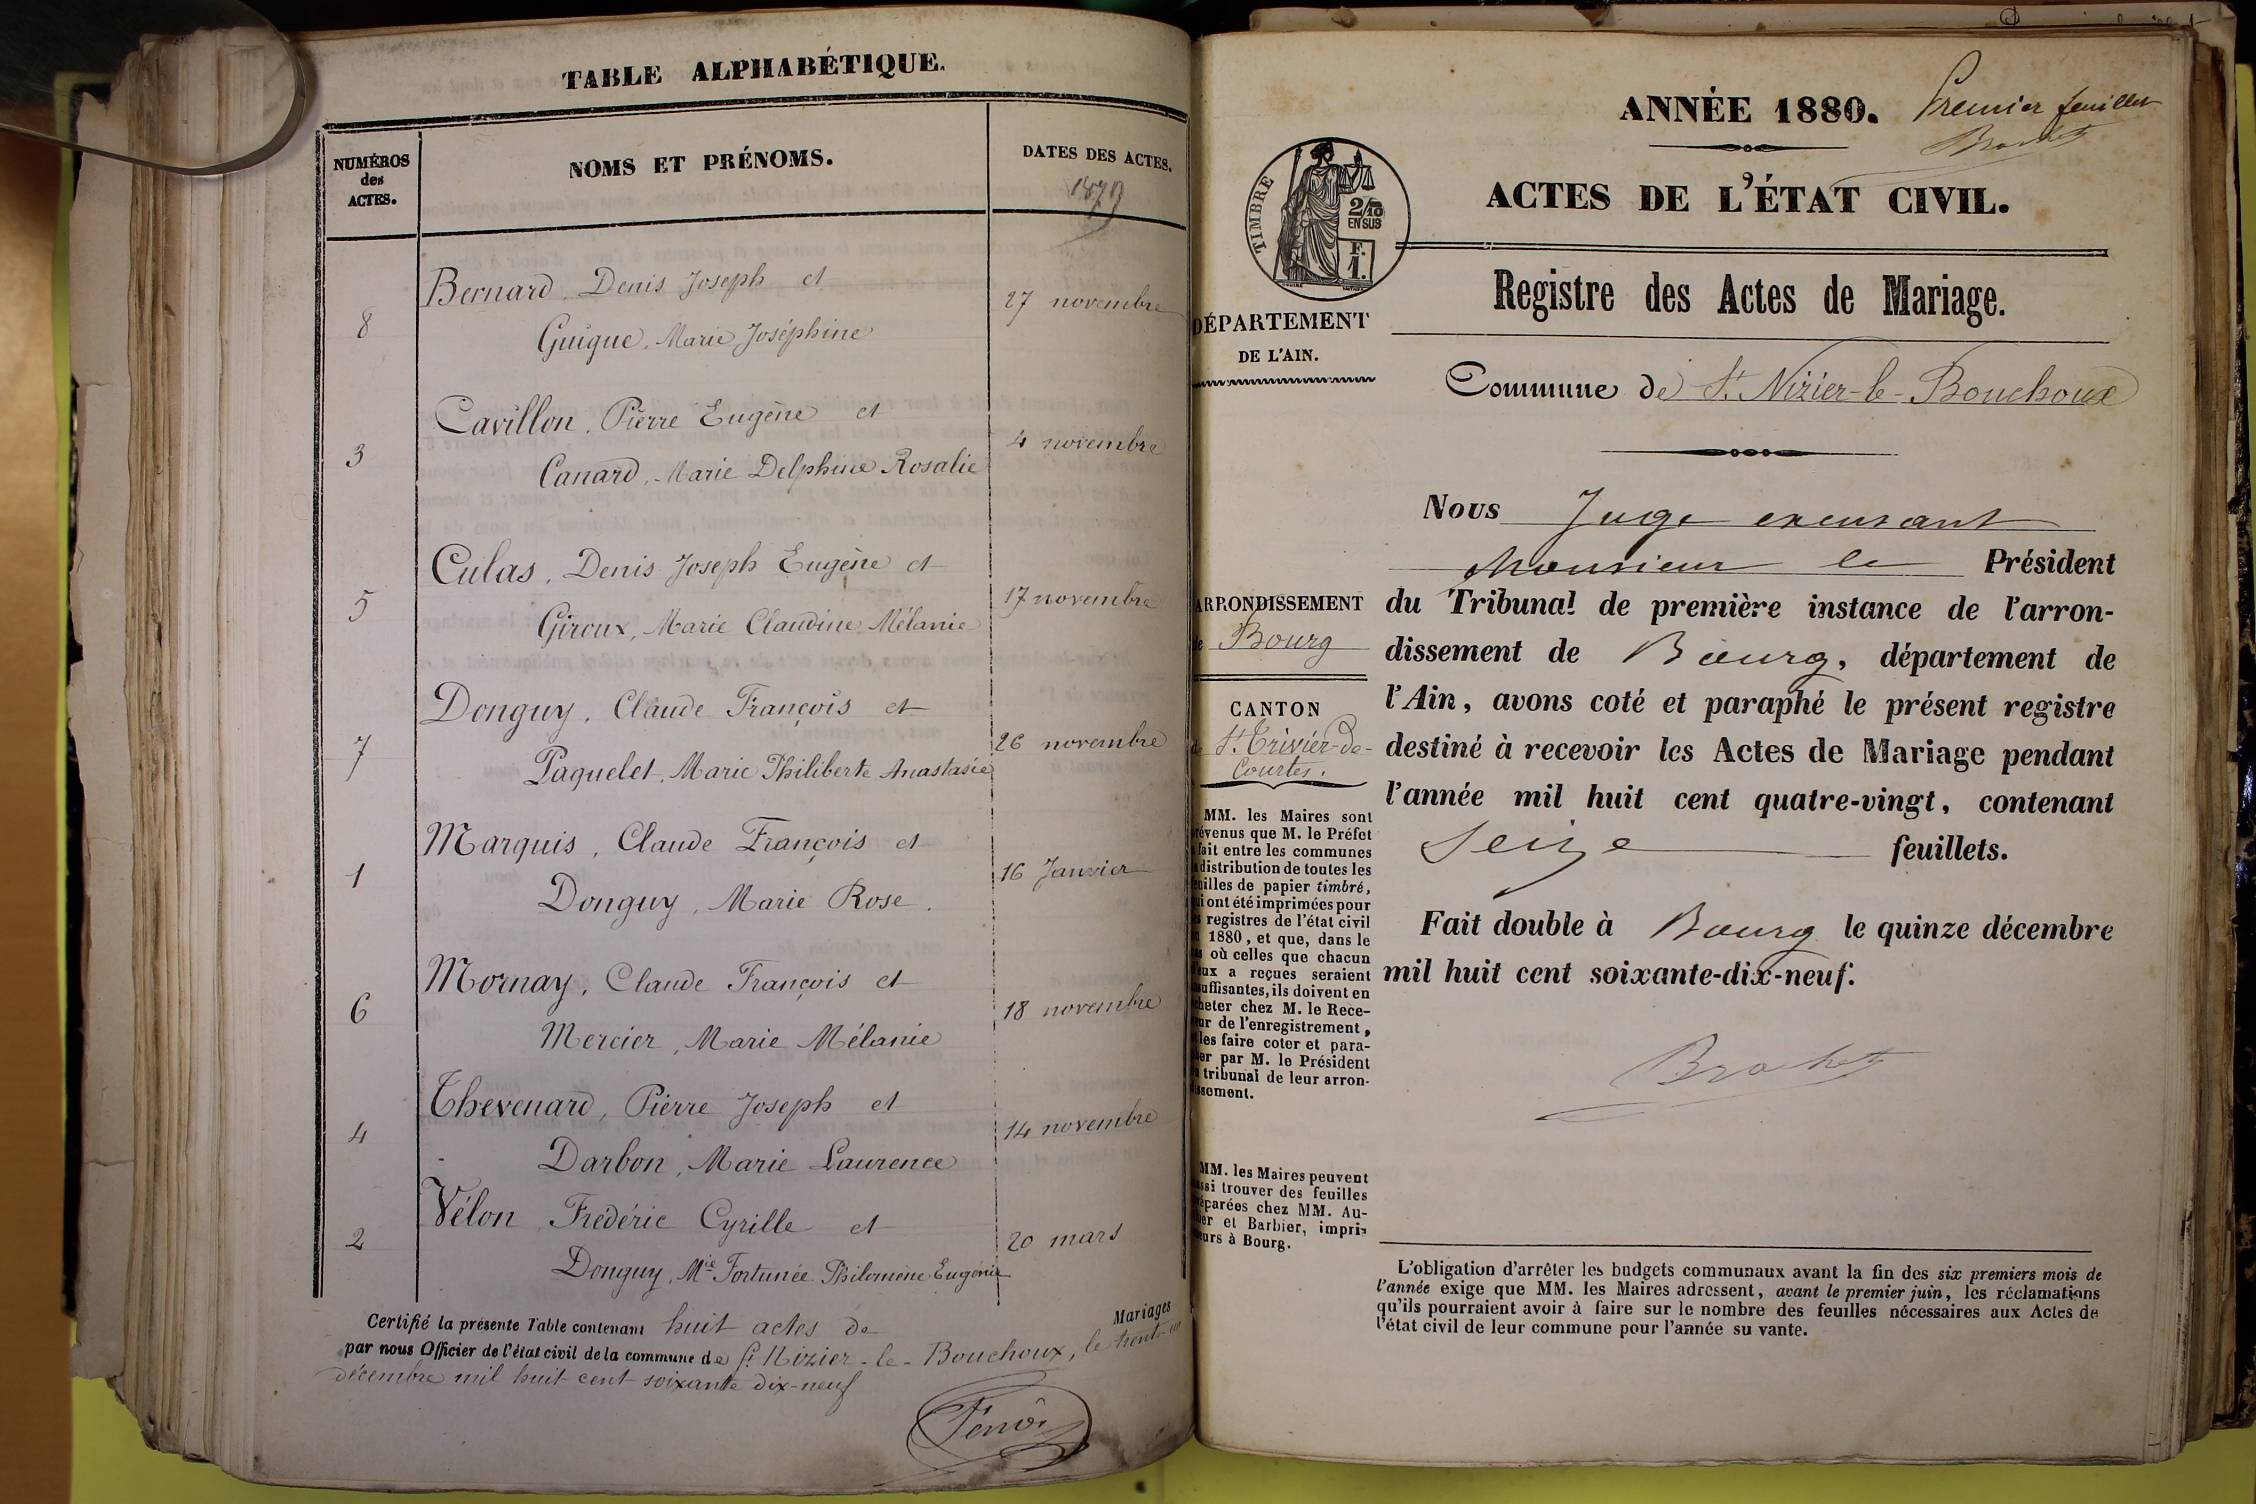 TABLE ALPHABÉTIQUE.
NUMÉROS
des
ACTES.
NOMS ET PRÉNOMS.
DATES DES ACTES.
1879
8
Bernard, Denis Joseph et
Guigue, Marie Joséphine
27 novembre
3
Cavillon, Pierre Eugène et
Canard, Marie Delphine Rosalie
4 novembre
5
Culas, Denis Joseph Eugène et
Giroux, Marie Claudine Mélanie
17 novembre
7
Donguy, Claude François et
Paquelet, Marie Philiberte Anastasie
26 novembre
1
Marquis, Claude François et
Donguy, Marie Rose.
16 Janvier
6
Mornay, Claude François et
Mercier, Marie Mélanie
18 novembre
4
Thevenard, Pierre Joseph et
Darbon, Marie Laurence
14 novembre
2
Vélon, Frédéric Cyrille et
Donguy, Mie Fortunée Philomène Eugénie
20 mars
Certifié la présente Table contenant huit actes de Mariages
par nous Officier de l'état civil de la commune de St Nizier-le-Bouchoux, le trente-un
décembre mil huit cent soixante dix-neuf
ANNÉE 1880. Premier feuillet
Brochet
ACTES DE L'ÉTAT CIVIL.
TIMBRE
2/10
EN SUS
F.
1.
Registre des Actes de Mariage.
DÉPARTEMENT
DE L'AIN.
Commune de St Nizier-le-Bouchoux
Nous Juge excusant
Monsieur le Président
du Tribunal de première instance de l'arron-
dissement de Bourg, département de
l'Ain, avons coté et paraphé le présent registre
destiné à recevoir les Actes de Mariage pendant
l'année mil huit cent quatre-vingt, contenant
Seize feuillets.
Fait double à Bourg le quinze décembre
mil huit cent soixante-dix-neuf.
Brochet
ARRONDISSEMENT
de Bourg
CANTON
de St Trivier-de-
Courtes.
MM. les Maires sont
prévenus que M. le Préfet
a fait entre les communes
la distribution de toutes les
feuilles de papier timbré,
qui ont été imprimées pour
les registres de l'état civil
en 1880, et que, dans le
cas où celles que chacun
d'eux a reçues seraient
insuffisantes, ils doivent en
acheter chez M. le Rece-
veur de l'enregistrement,
et les faire coter et para-
pher par M. le Président
du tribunal de leur arron-
dissement.
MM. les Maires peuvent
aussi trouver des feuilles
préparées chez MM. Au-
et Barbier, impri-
meurs à Bourg.
L'obligation d'arrêter les budgets communaux avant la fin des six premiers mois de
l'année exige que MM. les Maires adressent, avant le premier juin, les réclamations
qu'ils pourraient avoir à faire sur le nombre des feuilles nécessaires aux Actes de
l'état civil de leur commune pour l'année su vante.